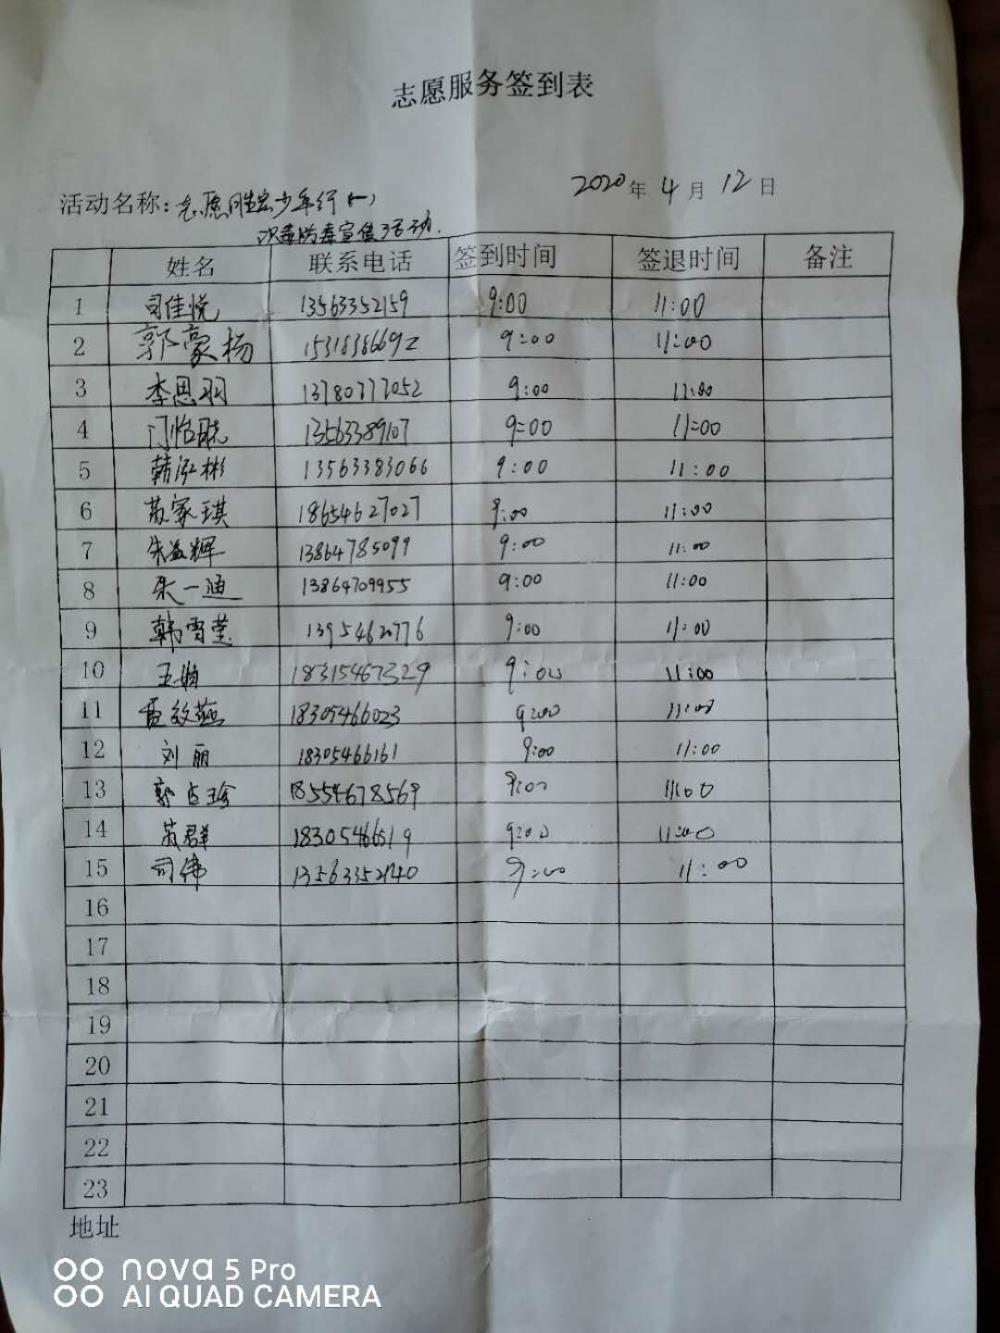 志愿服务签到表
2020年4月12日
活动名称:志愿胜宏少年行(一)
识毒防毒宣传活动.
姓名 联系电话 签到时间 签退时间 备注
1 司佳悦 13563352159 9:00 11:00
2 郭豪杨 15318386692 9:00 11:00
3 李思羽 13780777052 9:00 11:00
4 门怡晓 13563389107 9:00 11:00
5 韩泓彬 13563383066 9:00 11:00
6 苏家琪 18654627027 9:00 11:00
7 朱益辉 13864785099 9:00 11:00
8 张一通 13864709955 9:00 11:00
9 韩雪莹 13954620776 9:00 11:00
10 王娟 18315467329 9:00 11:00
11 18305466023 9:00 11:00
12 刘丽 18305466161 9:00 11:00
13 郭占珍 18554678569 9:00 11:00
14 苏群 18305466519 9:00 11:00
15 司伟 13563352140 9:00 11:00
16
17
18
19
20
21
22
23
地址
nova 5 Pro
AI QUAD CAMERA